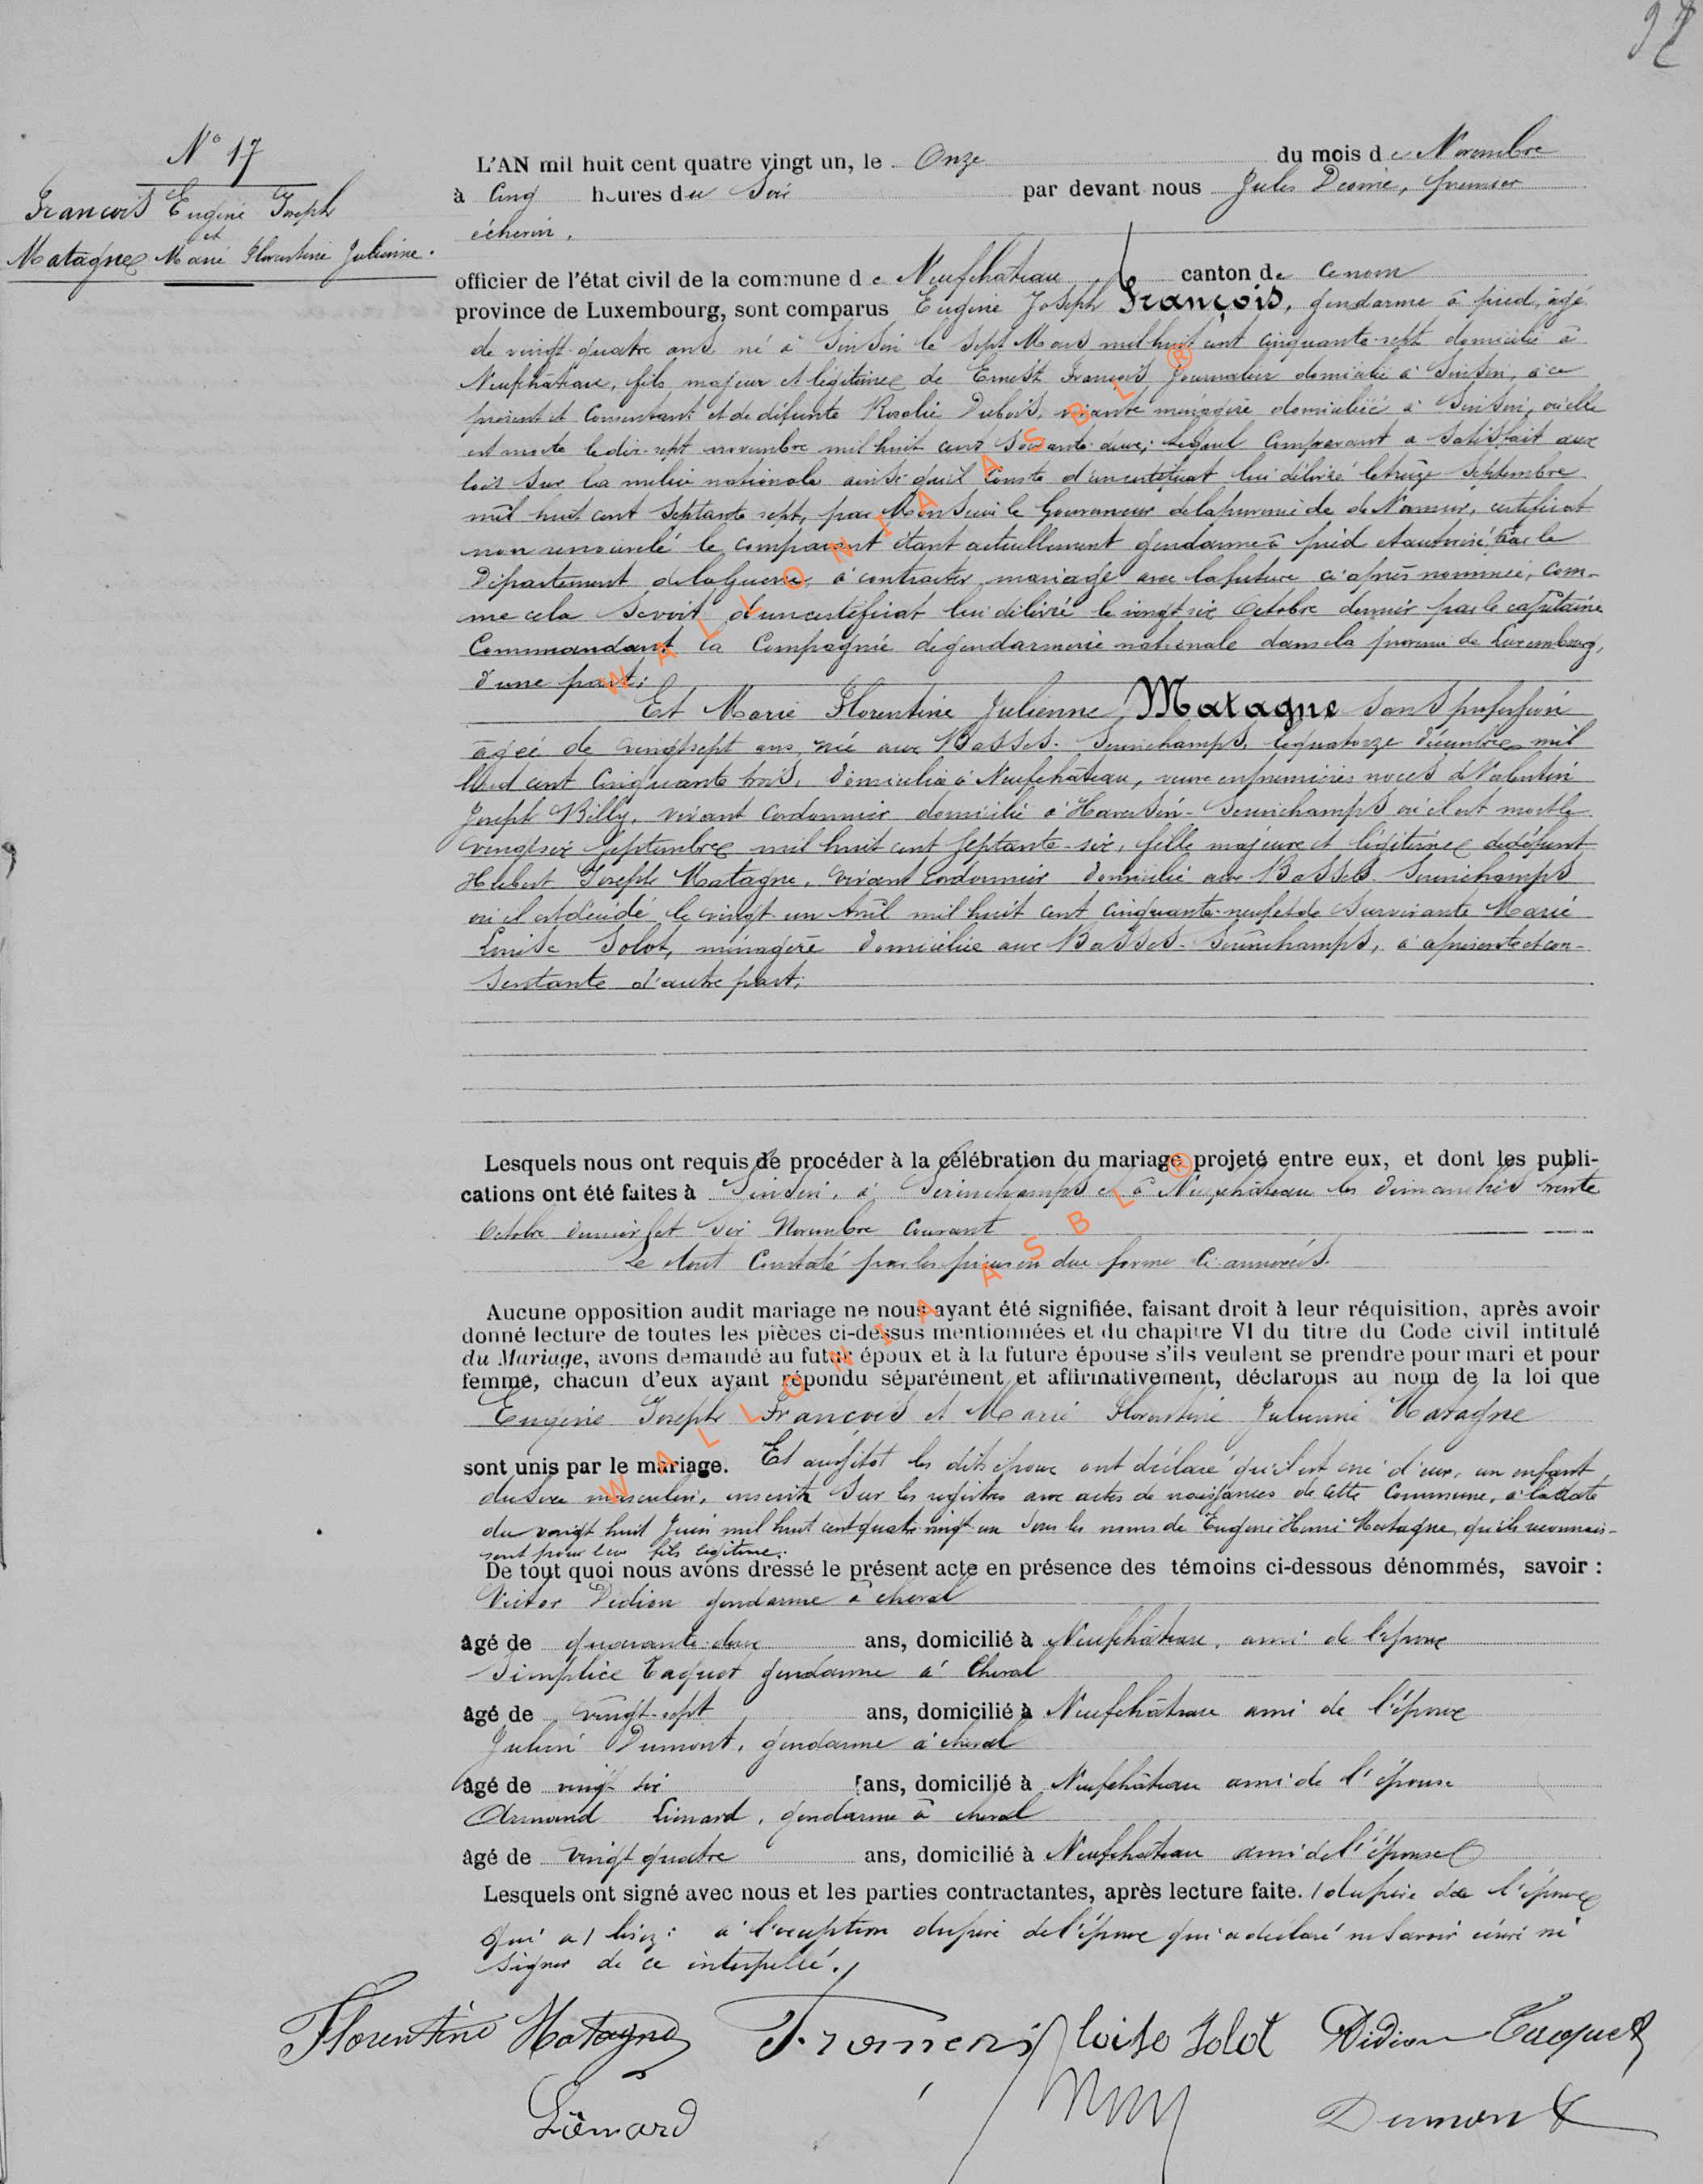 97
N° 17
François Eugène Joseph
et
Matagne Marie Florentine Julienne.
L'AN mil huit cent quatre vingt un, le Onze du mois de Novembre
à Cinq heures du Soir par devant nous Jules premier
échevin,
officier de l'état civil de la commune de Neufchâteau canton de ce nom
province de Luxembourg, sont comparus Eugène Joseph François, gendarme à pied, âgé
de vingt-quatre ans né à Sinsin le Sept Mars mil huit cent cinquante-sept domicilié à
Neufchâteau, fils majeur et légitime de Ernest François journalier domicilié à Sinsin, à ce
présent et Consentant et de défunte Rosalie Dubois, vivante ménagère domiciliée à Sinsin, où elle
est morte le dix-sept novembre mil huit cent soixante-deux; Lequel Comparant a Satisfait aux
lois sur la milice nationale ainsi qu'il Conste d'un certificat lui délivré le treize Septembre
mil huit cent Septante sept, par Monsieur le Gouverneur de la province de Namur, certificat
non renouvelé le comparant étant actuellement gendarme à pied et autorisé par le
Département de la Guerre, à contracter mariage avec la future ci-après nommée, com-
me cela se voit d'un certificat lui délivré le vingt six Octobre dernier par le capitaine
Commandant la Compagnie de gendarmerie nationale dans la province de Luxembourg,
d'une part;
Et Marie Florentine Julienne Matagne Sans profession
âgée de vingt sept ans, née aux Basses-Serinchamps, le quatorze décembre mil
huit cent Cinquante trois, domiciliée à Neufchâteau, veuve en premières noces de Valentin
Joseph Billy, vivant Cordonnier domicilié à Haversin-Serinchamps où il est mort le
vingt six Septembre mil huit cent Septante-six, fille majeure et légitime de défunt
Hubert Joseph Matagne, vivant Cordonnier domicilié aux Basses Serinchamps
où il est décédé le vingt-un Avril mil huit cent cinquante-neuf et de Survivante Marie
Louise Solot, ménagère domiciliée aux Basses-Serinchamps, à ce présente et con-
sentante d'autre part;
Lesquels nous ont requis de procéder à la célébration du mariage projeté entre eux, et dont les publi-
cations ont été faites à Sinsin, à Serinchamps et à Neufchâteau les dimanches trente
Octobre dernier et Six Novembre Courant
Le tout Constaté par les pièces en due forme Ci-annexées.
Aucune opposition audit mariage ne nous ayant été signifiée, faisant droit à leur réquisition, après avoir
donné lecture de toutes les pièces ci-dessus mentionnées et du chapitre VI du titre du Code civil intitulé
du Mariage, avons demandé au futur époux et à la future épouse s'ils veulent se prendre pour mari et pour
femme, chacun d'eux ayant répondu séparément et affirmativement, déclarons au nom de la loi que
Eugène Joseph François et Marie Florentine Julienne Matagne
sont unis par le mariage. Et aussitôt les dits époux ont déclaré qu'il est né d'eux, un enfant
du Sexe masculin, inscrit Sur les registres aux actes de naissances de cette Commune, à la date
du vingt huit Juin mil huit cent quatre vingt un Sous les noms de Eugène Henri Matagne, qu'ils reconnais-
sent pour leur fils légitime;
De tout quoi nous avons dressé le présent acte en présence des témoins ci-dessous dénommés, savoir :
Victor Didion gendarme à cheval
âgé de quarante-deux ans, domicilié à Neufchâteau, ami de l'époux
Simplice Tacquet gendarme à Cheval
âgé de vingt-sept ans, domicilié à Neufchâteau ami de l'époux
Julien Dumont, gendarme à cheval
âgé de vingt six ans, domicilié à Neufchâteau ami de l'épouse
Armand Liénard, gendarme à cheval
âgé de vingt quatre ans, domicilié à Neufchâteau ami de l'épouse
Lesquels ont signé avec nous et les parties contractantes, après lecture faite. / du père de l'époux
qui a / lisez : à l'exception du père de l'époux qui a déclaré ne savoir écrire ni
signer de ce interpellé.
Florentine Matagne François Loise Solot Didion Tacquet
Liénard Dumont
WALLONIA ASBL ®
WALLONIA ASBL ®